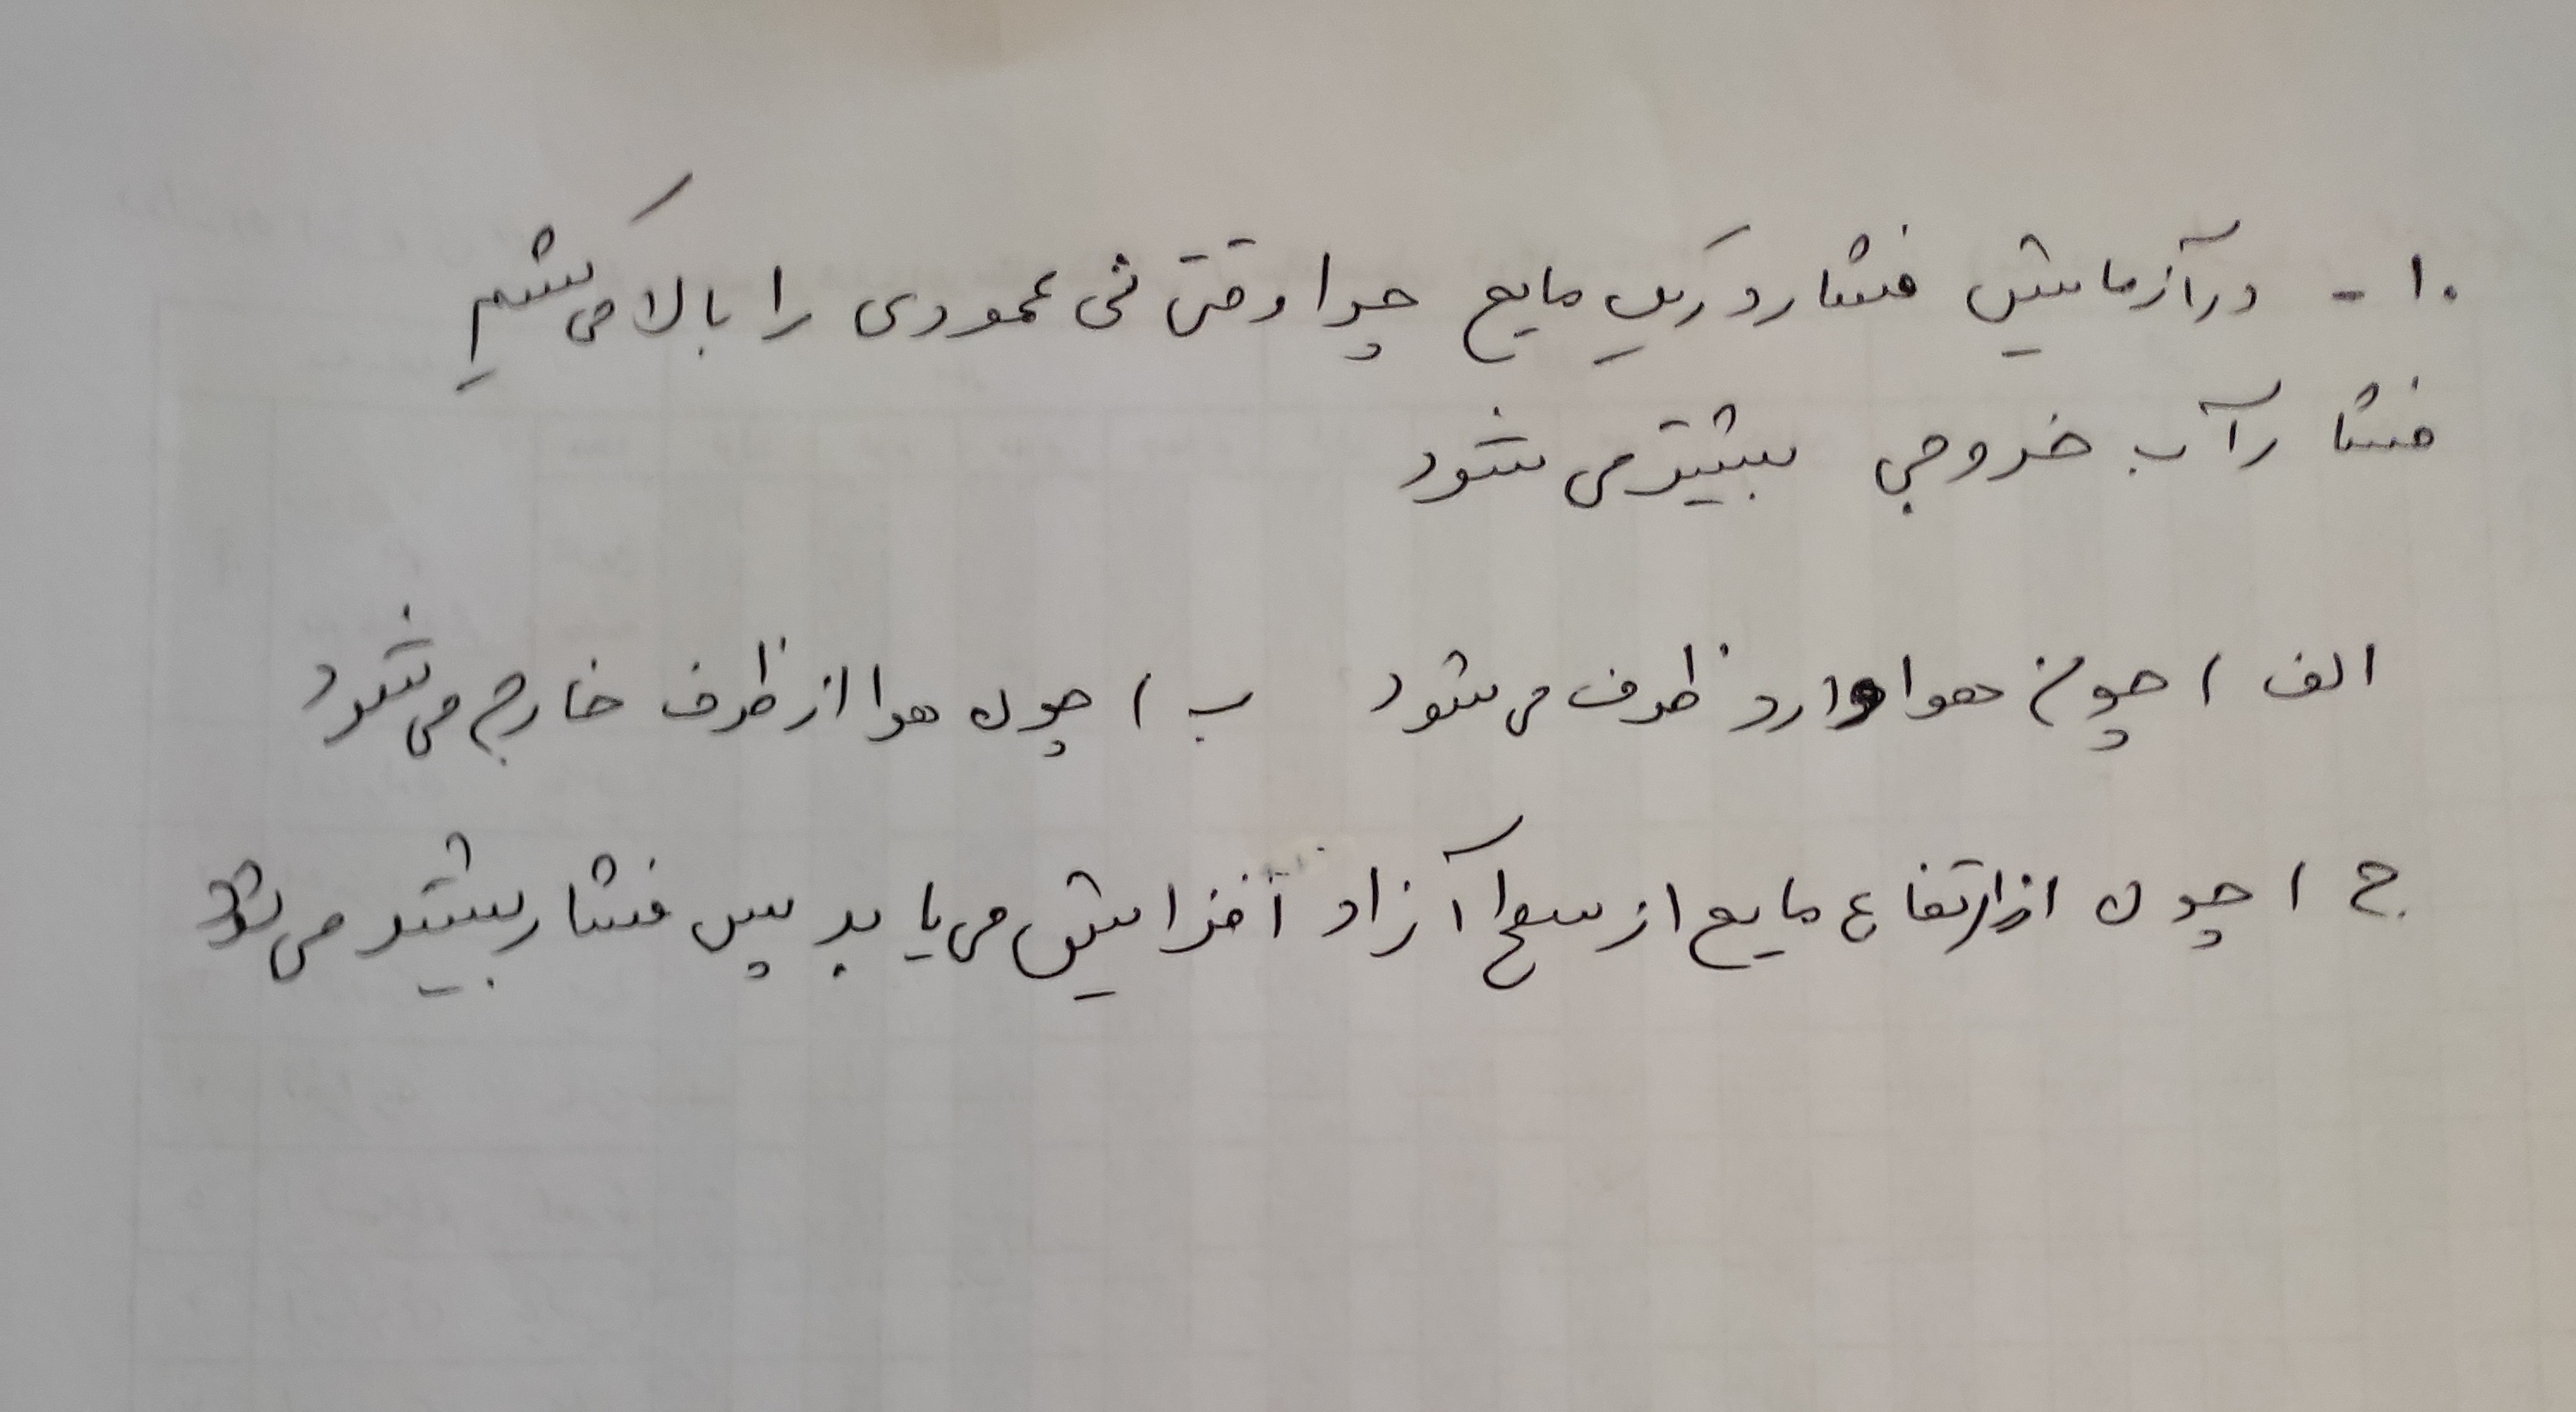 ۱۰- در آزمایش فشار در یک مایع چرا وقتی نی عمودی را بالا می کشیم
فشار آب خروجی بیشتر می شود
الف) چون هوا وارد ظرف می شود ب) چون هوا از ظرف خارج می شود
ج) چون ارتفاع مایع از سطح آزاد افزایش می یابد پس فشار بیشتر می شود